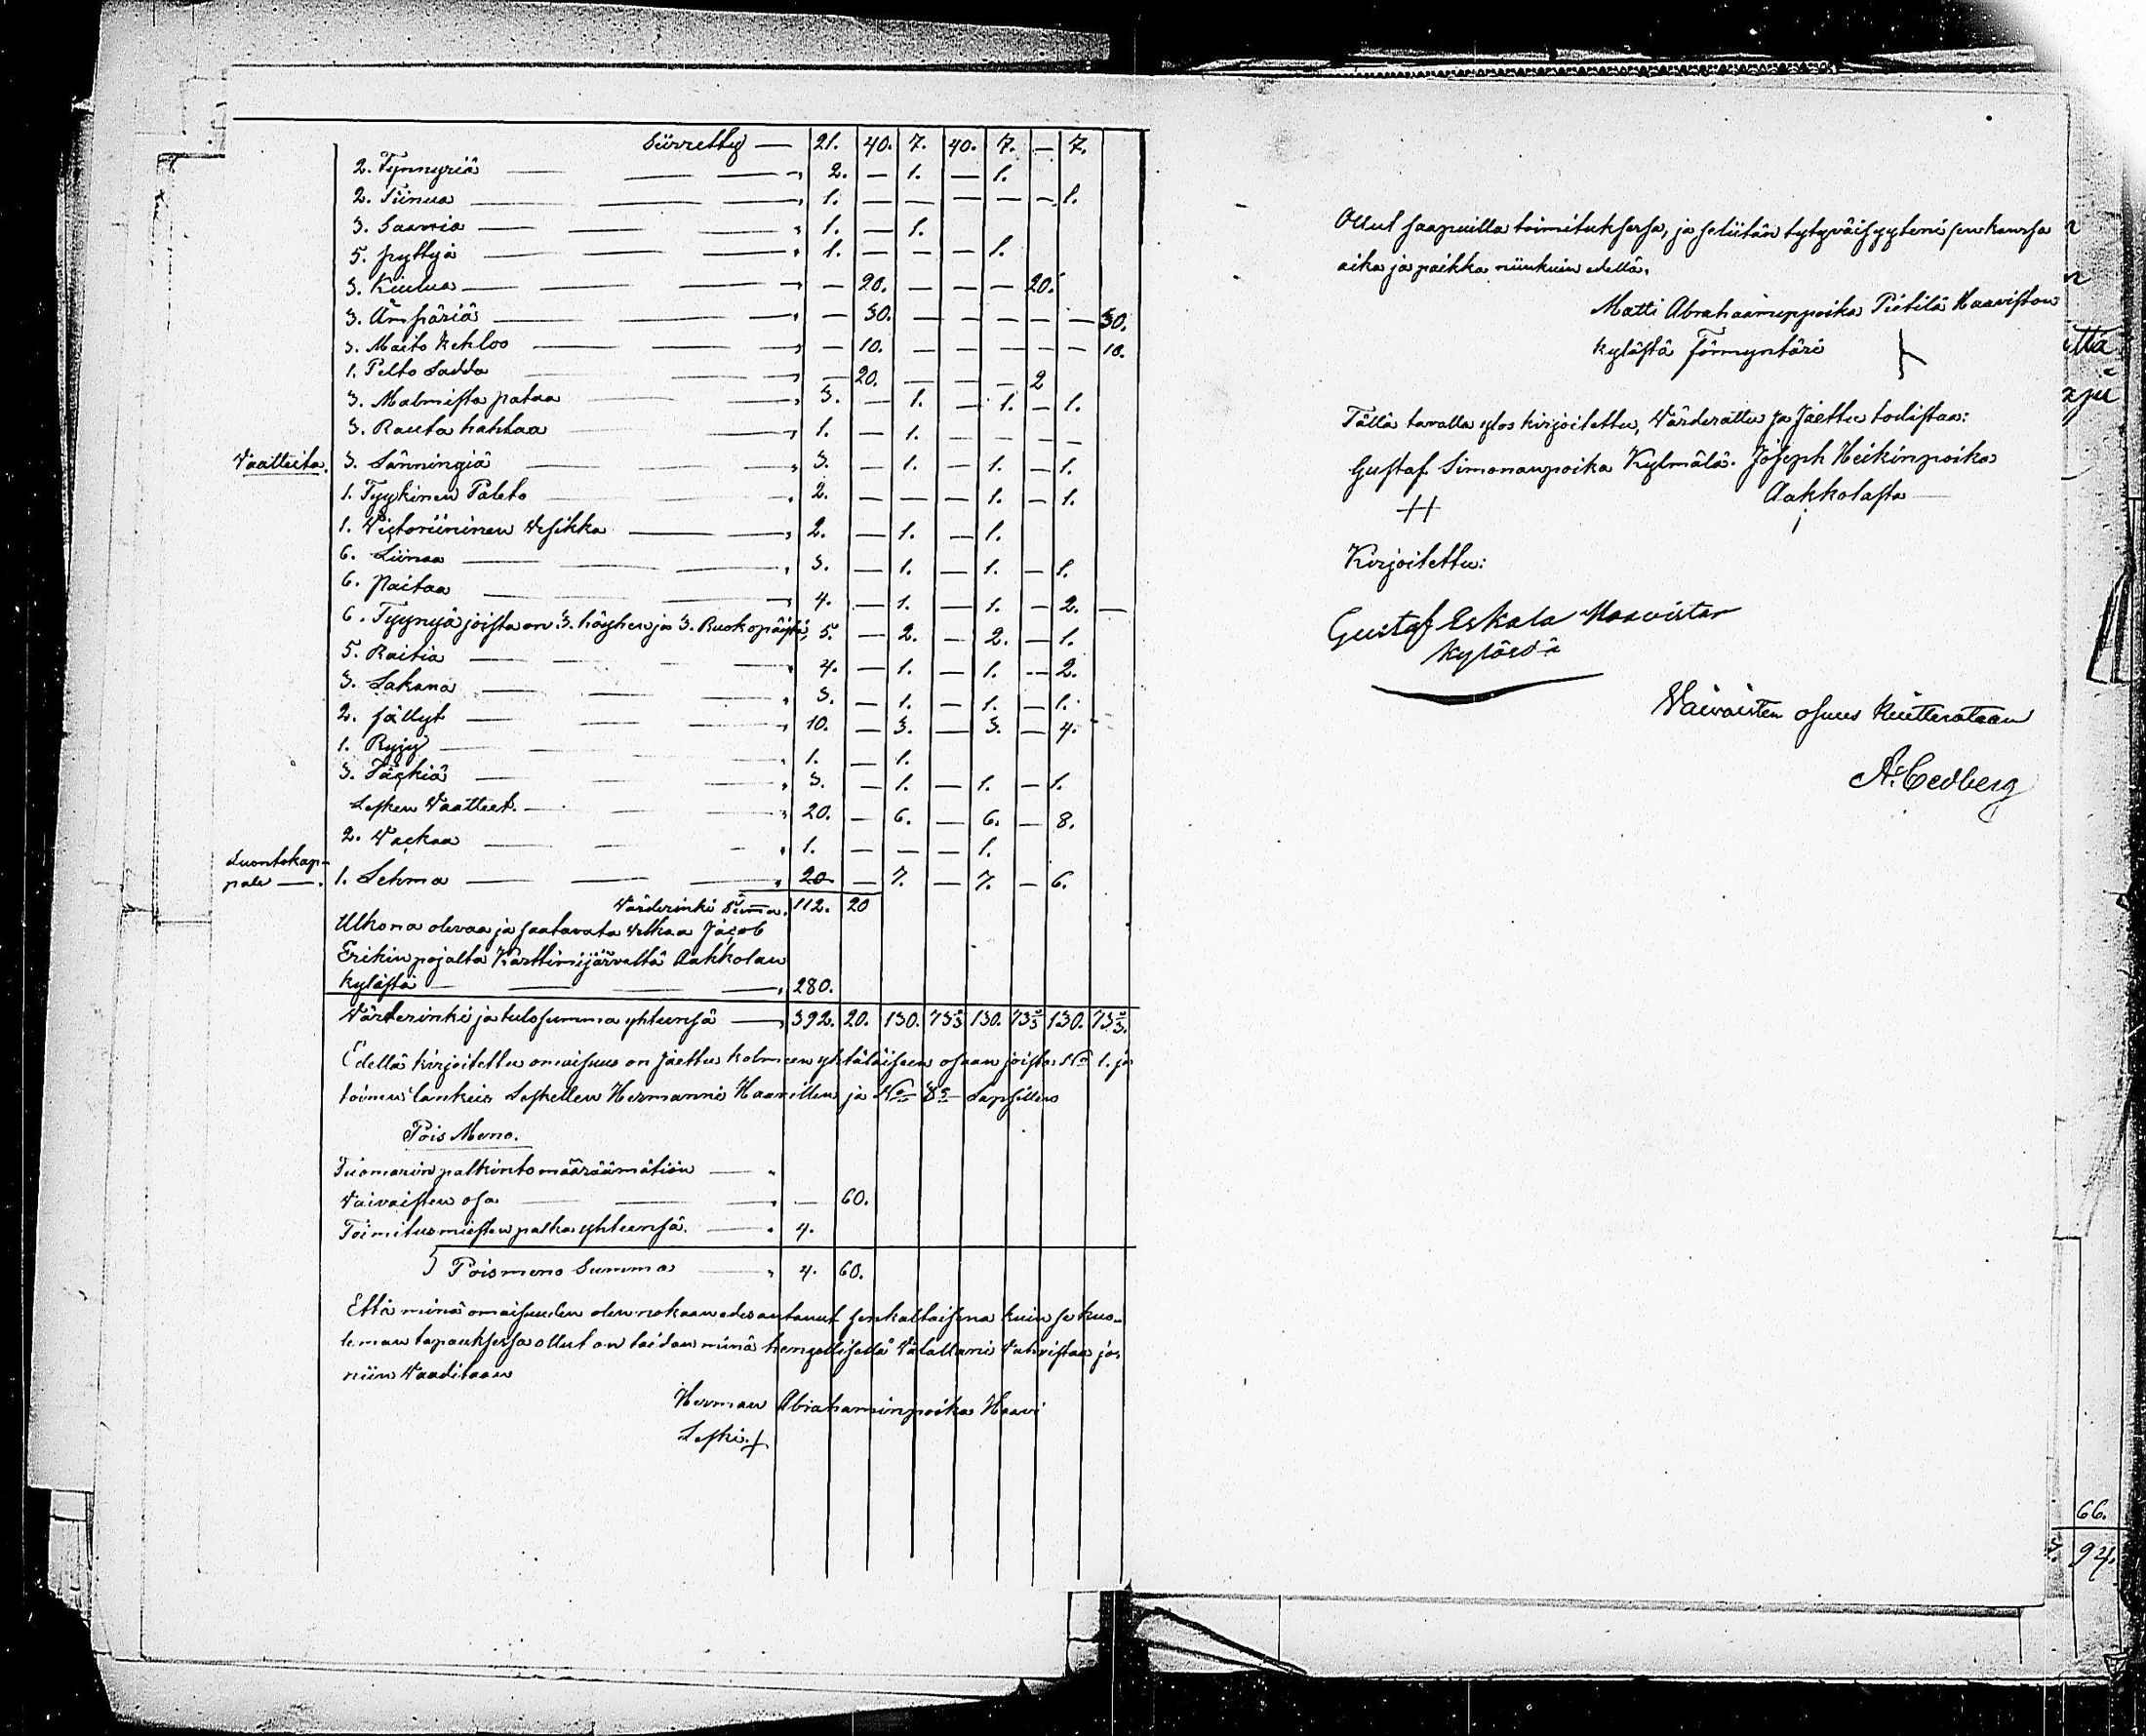 Siirretty — 21. 40. 7. 40. 7. — 7.
2. Tynnyriä — — — „ 2. — 1. — 1.
2. Tiinua — — „ 1. — — — — — 1.
3. Saavia — — — „ 1. — 1.
5. pyttyä — — — „ 1. — — — 1.
3. Kiulua — — — „ — 20. — — — 20.
3. Ämpäriä — — — „ — 30. — — — — — 30.
3. Maito kehloo — — — „ — 10. — — — — — 10.
1. Pelto Sadda — — „ — 20. — — — 2
3. Malmista pataa — — „ 3. — 1. — 1. — 1.
3. Rauta hahlaa — — „ 1. — 1. — — — —
Vaatteita. 3. Sänningiä — — „ 3. — 1. — 1. — 1.
1. Tyykinen Paleto — — „ 2. — — — 1. — 1.
1. Victoriininen Vesikka — — „ 2. — 1. — 1.
6. Liinaa — — „ 3. — 1. — 1. — 1.
6. Paitaa — — „ 4. — 1. — 1. — 2. —
6. Tyynyä joista on 3. höyhen ja 3. Ruokopäistä, 5. — 2. — 2. — 1.
5. Raitia — — — „ 4. — 1. — 1. — 2.
3. Lakana — — — „ 3. — 1. — 1. — 1.
2. fällyt — — — „ 10. — 3. — 3. — 4.
1. Ryjy — — — „ 1. — 1.
3. Täckiä — — — „ 3. — 1. — 1. — 1.
Lesken Vaatteet. — — — „ 20. — 6. — 6. — 8.
2. Vackaa — — — „ 1. — — — 1.
Luontokap-
pale —. 1. Lehmä — — — „ 20 — 7. — 7. — 6.
Värderinki Suma. 112. 20
Ulkona olevaa ja saatavata velkaa Jacob
Erikin pojalta Karttimijärveltä Aakkolan
kylästä — — — „ 280.
Värderinki ja tulo summa yhteensä — „ 392. 20. 130. 73⅓ 130. 73⅓ 130. 73⅓.
Edellä kirjoitettu omaisuus on Jaettu kolmeen yhtäläiseen osaan joista No 1. ja
toinen lankeis Leskellen Hermanni Haavillen ja No 3 Lapsillens
Pois Meno.
Tuomarin palkinto määräämätöin — „
Vaivaisten osa — — „ — 60.
Toimitusmiesten palka yhteensä. — „ 4.
Poismeno Summa — „ 4. 60.
Että minä omaisuuden olen rokaan edesantanut senkaltaisena kuin se kuo-
leman tapauksessa ollut on taidan minä hengellisellä Valallani Vahvistaa jos
niin Vaaditaan
Herman Abrahaminpoika Haavi
Leski. +
Ollut saapuilla toimituksessa, ja selitän tytyväisyyteni sen kanssa
aika ja paikka niinkuin edellä.
Matti Abrahaminpoika Pietilä Haaviston
kylästä Förmyntäri
Tällä tavalla ylos kirjoitettu, Värderattu Ja Jaettu todistaa:
Gustaf Simonanpoika Kylmälä. Joseph Heikinpoika
Aakkolasta —
Kirjoitettu:
Gustaf Eskala Haaviston
kylästä
Vaivaisten osuus kuitterataan
A. Cedberg
66.
94.